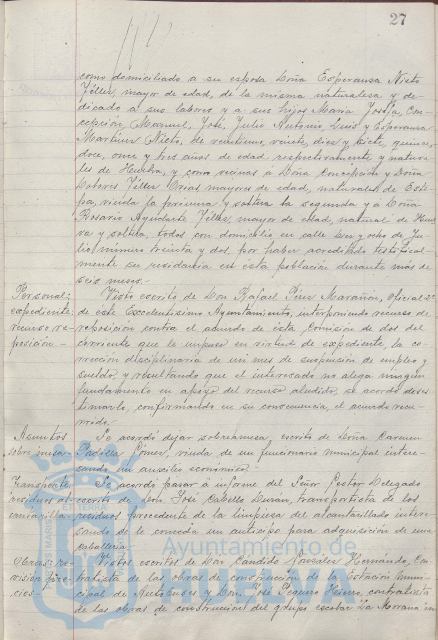 27
como domiciliado a su esposa Doña Esperanza Nieto
Téllez, mayor de edad, de la misma naturaleza y de-
dicado a sus labores y a sus hijos María Josefa, Con-
cepción, Manuel, José, Julio Antonio, Luis y Esperanza
Martínez Nieto, de veintiuno, veinte, diez y siete, quince,
doce, once y tres años de edad respectivamente y natura-
les de Huelva, y como vecinas á Doña Concepción y Doña
Dolores Téllez mayores de edad, naturales de Este-
pa, viuda la primera y soltera la segunda y á Doña
Rosario Téllez, mayor de edad, natural de Huel-
va y soltera, todos con domicilio en calle Diez y ocho de Ju-
lio número treinta y dos, por haber acreditado testifical-
mente su residencia en esta población durante más de
seis meses.
Personal:
expediente,
recurso re-
posición.-
Visto escrito de Don Rafael Pérez Marañón, Oficial 2º
de este Excelentísimo Ayuntamiento, interponiendo recurso de
reposición contra el acuerdo de esta Comisión de dos del
corriente que le impuso en virtud de expediente, la co-
rrección disciplinaria de un mes de suspensión de empleo y
sueldo, y resultando que el interesado no alega ningún
fundamento en apoyo del recurso aludido, se acordó deses-
timarlo, confirmando en su consecuencia, el acuerdo recu-
rrido.
Asuntos
sobre mesa.
Se acordó dejar sobre la mesa, escrito de Doña Carmen
Padilla Gómez, viuda de un funcionario municipal intere-
sando un auxilio económico.
Transporte
residuos al-
cantarilla.
Se acordó pasar á informe del Señor Gestor Delegado
escrito de Don José Cabello Durán, transportista de los
residuos procedente de la limpieza del alcantarillado intere-
sando se le conceda un anticipo para adquisición de una
caballería.
Obras: re-
visión pre-
cios-
Vistos escritos de Don Cándido González Hernández, Con-
tratista de las obras de construcción de la Estación muni-
cipal de Autobuses y Don José contratista
de las obras de construcción del grupo escolar La Morana in-
Ayuntamiento de
HUELVA